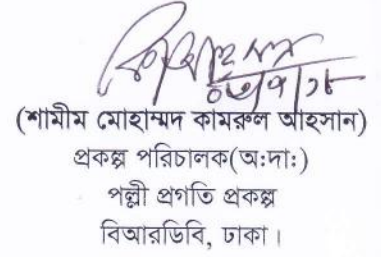 (শামীম মোহাম্মদ কামরুল আহসান)
প্রকল্প পরিচালক(অ:দা:)
পল্লী প্রগতি প্রকল্প
বিআরডিবি, ঢাকা।